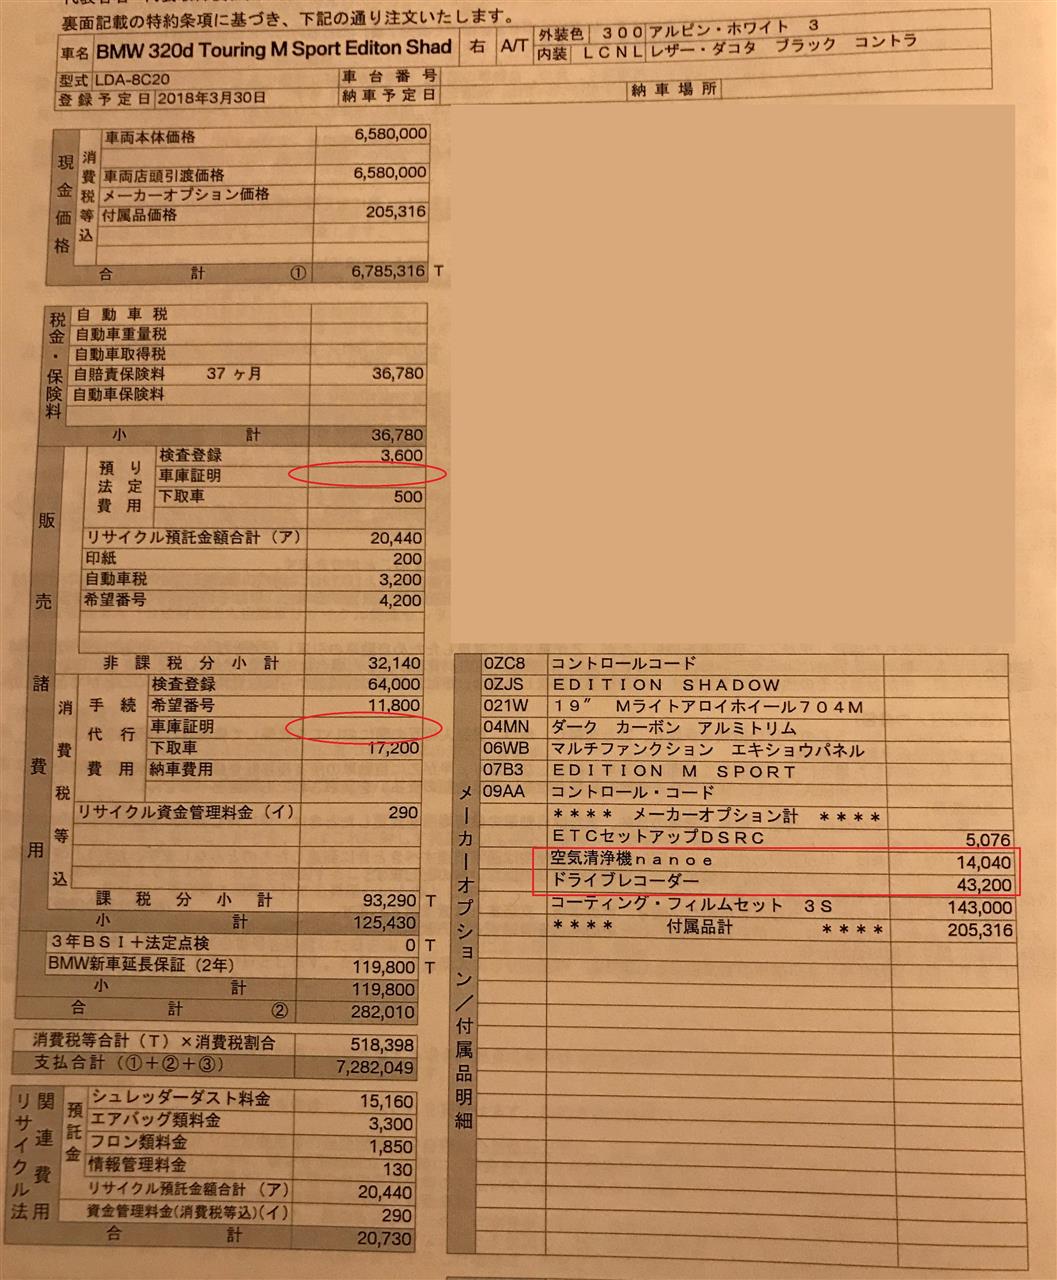 裏面記載の特約条項に基づき、下記の通り注文いたします。
車名 BMW 320d Touring M Sport Editon Shad 右 A/T 外装色 300 アルピン・ホワイト 3
内装 LCNL レザー・ダコタ ブラック コントラ
型式 LDA-8C20 車台番号
登録予定日 2018年3月30日 納車予定日 納車場所
現金価格 消費税等込
車両本体価格 6,580,000
車両店頭引渡価格 6,580,000
メーカーオプション価格
付属品価格 205,316
合計 ① 6,785,316 T
税金・保険料
自動車税
自動車重量税
自動車取得税
自賠責保険料 37ヶ月 36,780
自動車保険料
小計 36,780
販売諸費用
預り法定費用
検査登録 3,600
車庫証明
下取車 500
リサイクル預託金額合計(ア) 20,440
印紙 200
自動車税 3,200
希望番号 4,200
非課税分小計 32,140
消費税等込
手続代行費用
検査登録 64,000
希望番号 11,800
車庫証明
下取車 17,200
納車費用
リサイクル資金管理料金(イ) 290
課税分小計 93,290 T
小計 125,430
3年BSI+法定点検 0 T
BMW新車延長保証(2年) 119,800 T
小計 119,800
合計 ② 282,010
消費税等合計(T)×消費税割合 518,398
支払合計(①+②+③) 7,282,049
リサイクル法関連費用
預託金
シュレッダーダスト料金 15,160
エアバッグ類料金 3,300
フロン類料金 1,850
情報管理料金 130
リサイクル預託金額合計(ア) 20,440
資金管理料金(消費税等込)(イ) 290
合計 20,730
メーカーオプション/付属品明細
0ZC8 コントロールコード
0ZJS EDITION SHADOW
021W 19″ Mライトアロイホイール704M
04MN ダーク カーボン アルミトリム
06WB マルチファンクション エキショウパネル
07B3 EDITION M SPORT
09AA コントロール・コード
**** メーカーオプション計 ****
ETCセットアップDSRC 5,076
空気清浄機nanoe 14,040
ドライブレコーダー 43,200
コーティング・フィルムセット 3S 143,000
**** 付属品計 **** 205,316